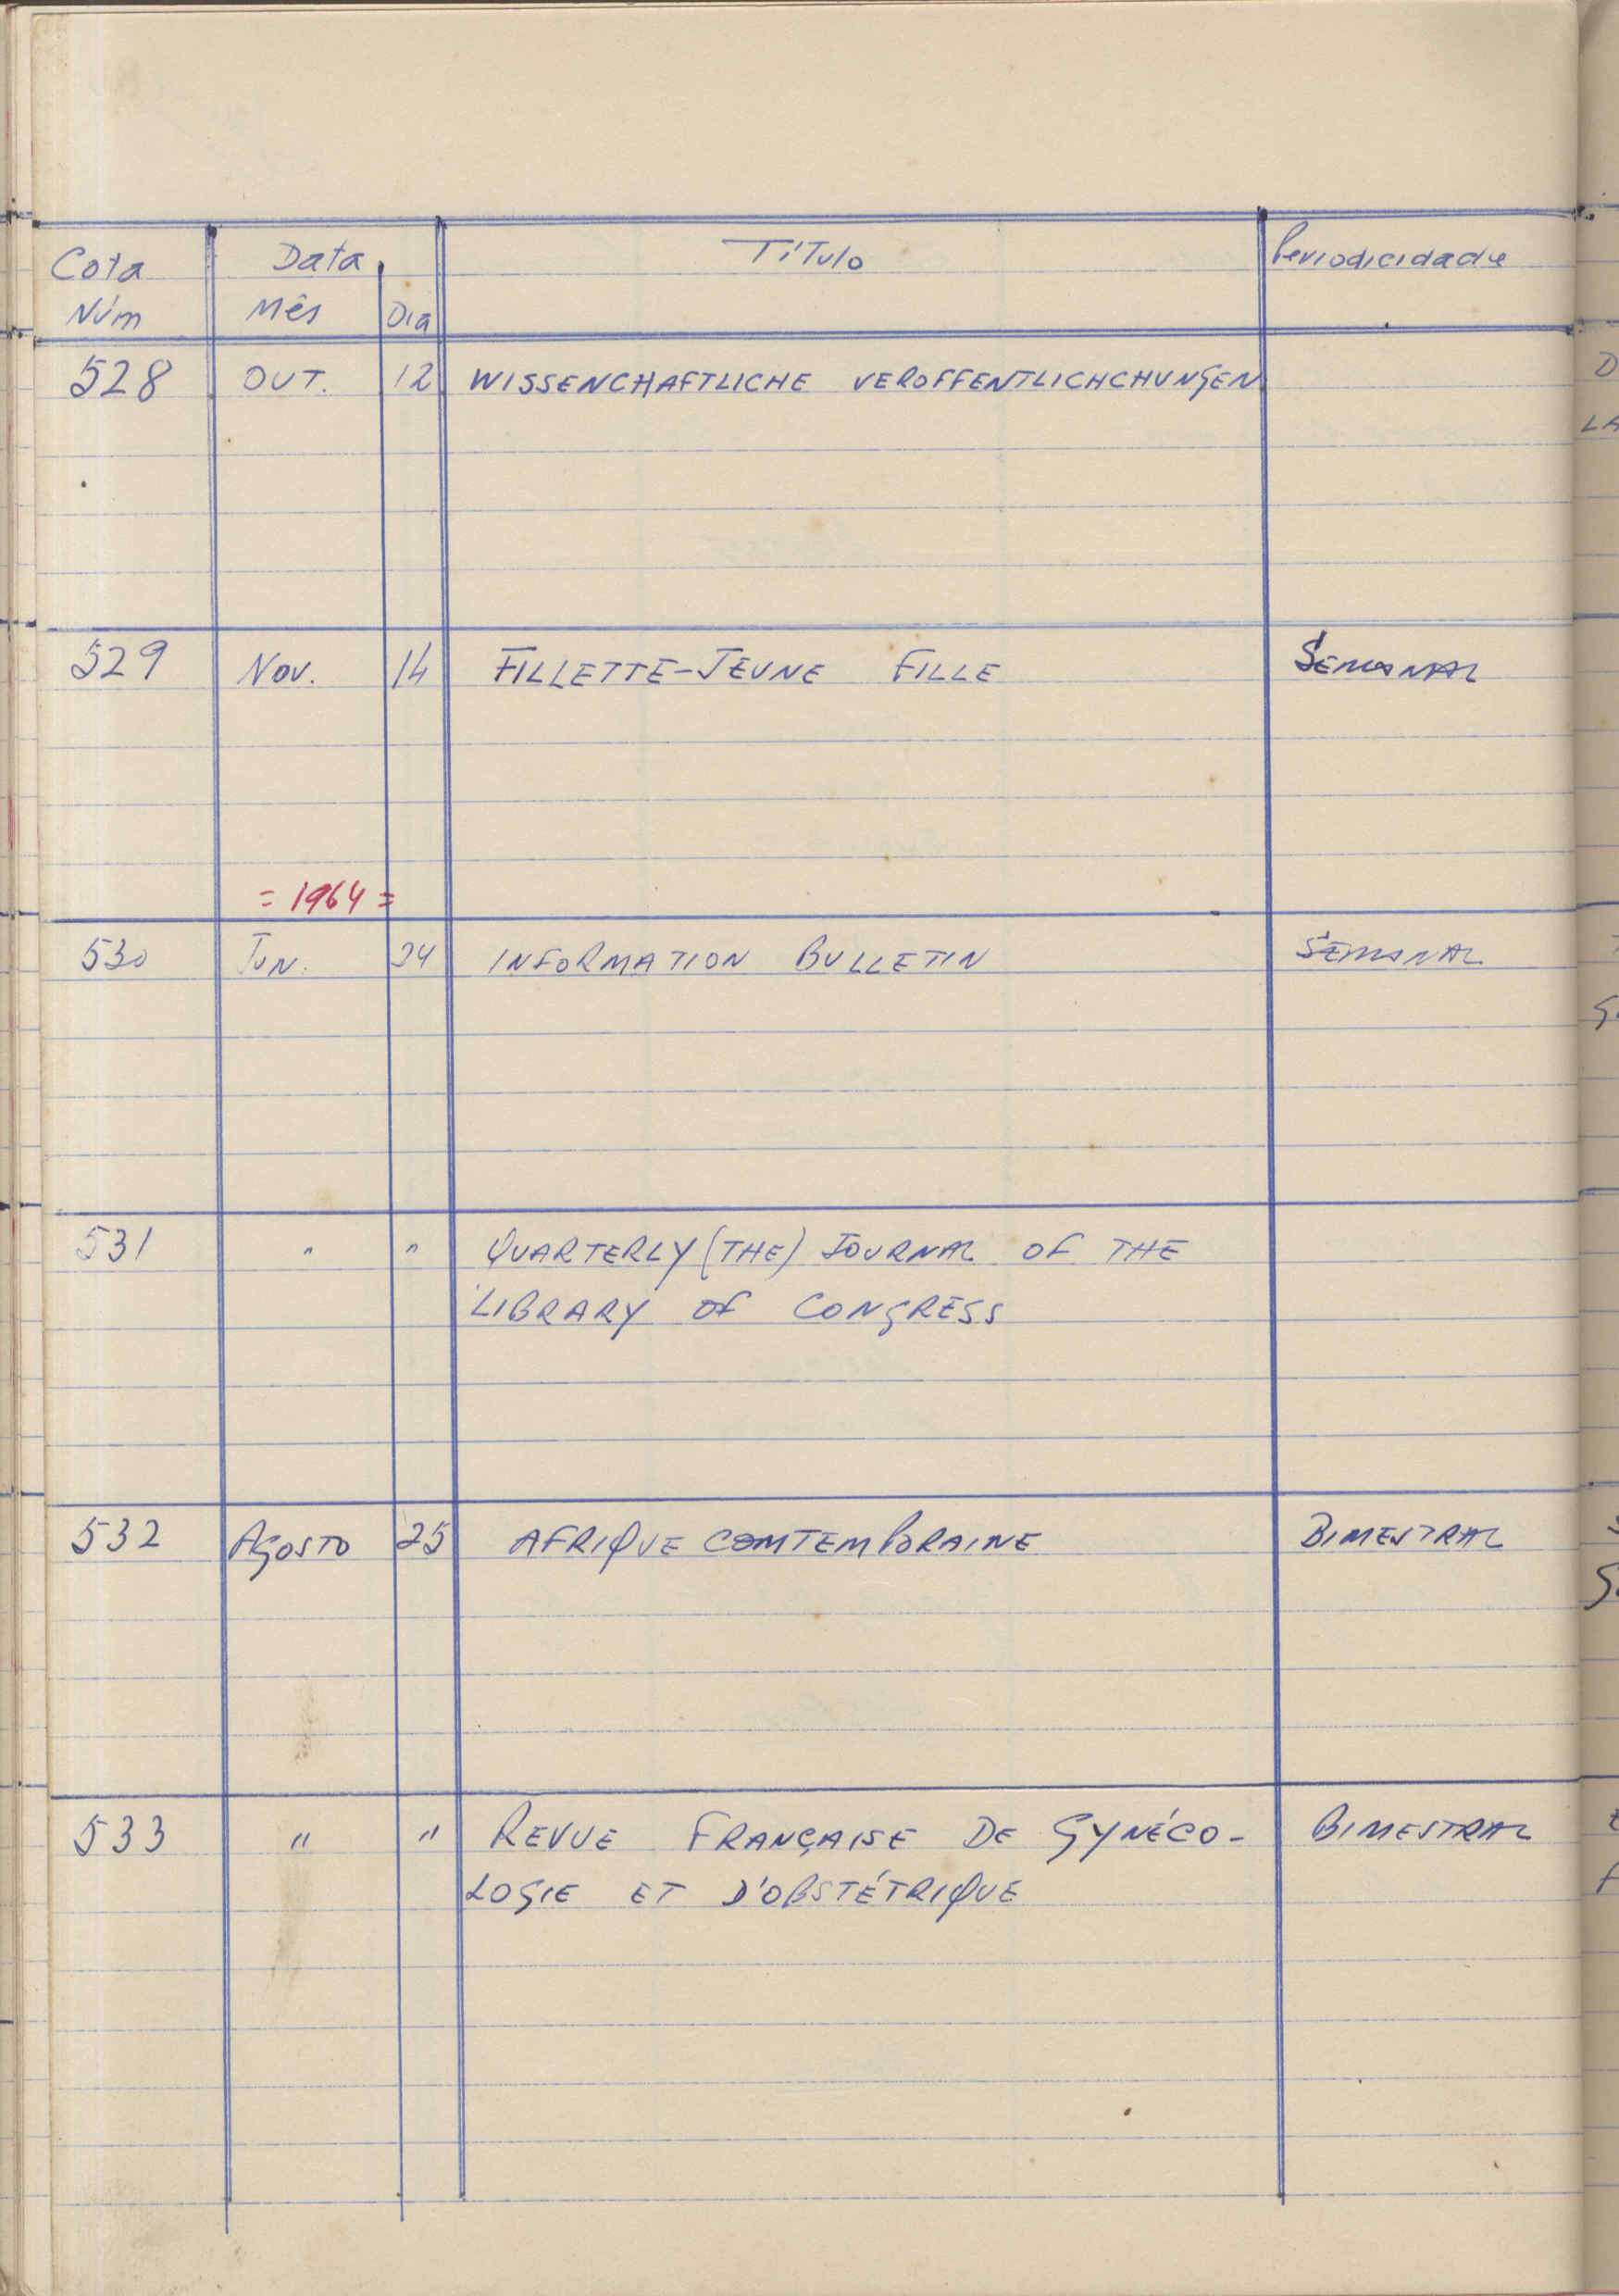 Cota Data Título Periodicidade
Núm Mês Dia
528 OUT. 12 WISSENCHAFTLICHE VEROFFENTLICHCHUNGEN
529 Nov. 14 FILLETTE-JEUNE FILLE SEMANAL
= 1964 =
530 JUN. 24 INFORMATION BULLETIN SEMANAL
531 " " QUARTERLY (THE) JOURNAL OF THE
LIBRARY OF CONGRESS
532 AGOSTO 25 AFRIQUE COMTEMPORAINE BIMESTRAL
533 " " REVUE FRANÇAISE DE GYNÉCO- BIMESTRAL
LOGIE ET D'OBSTÉTRIQUE